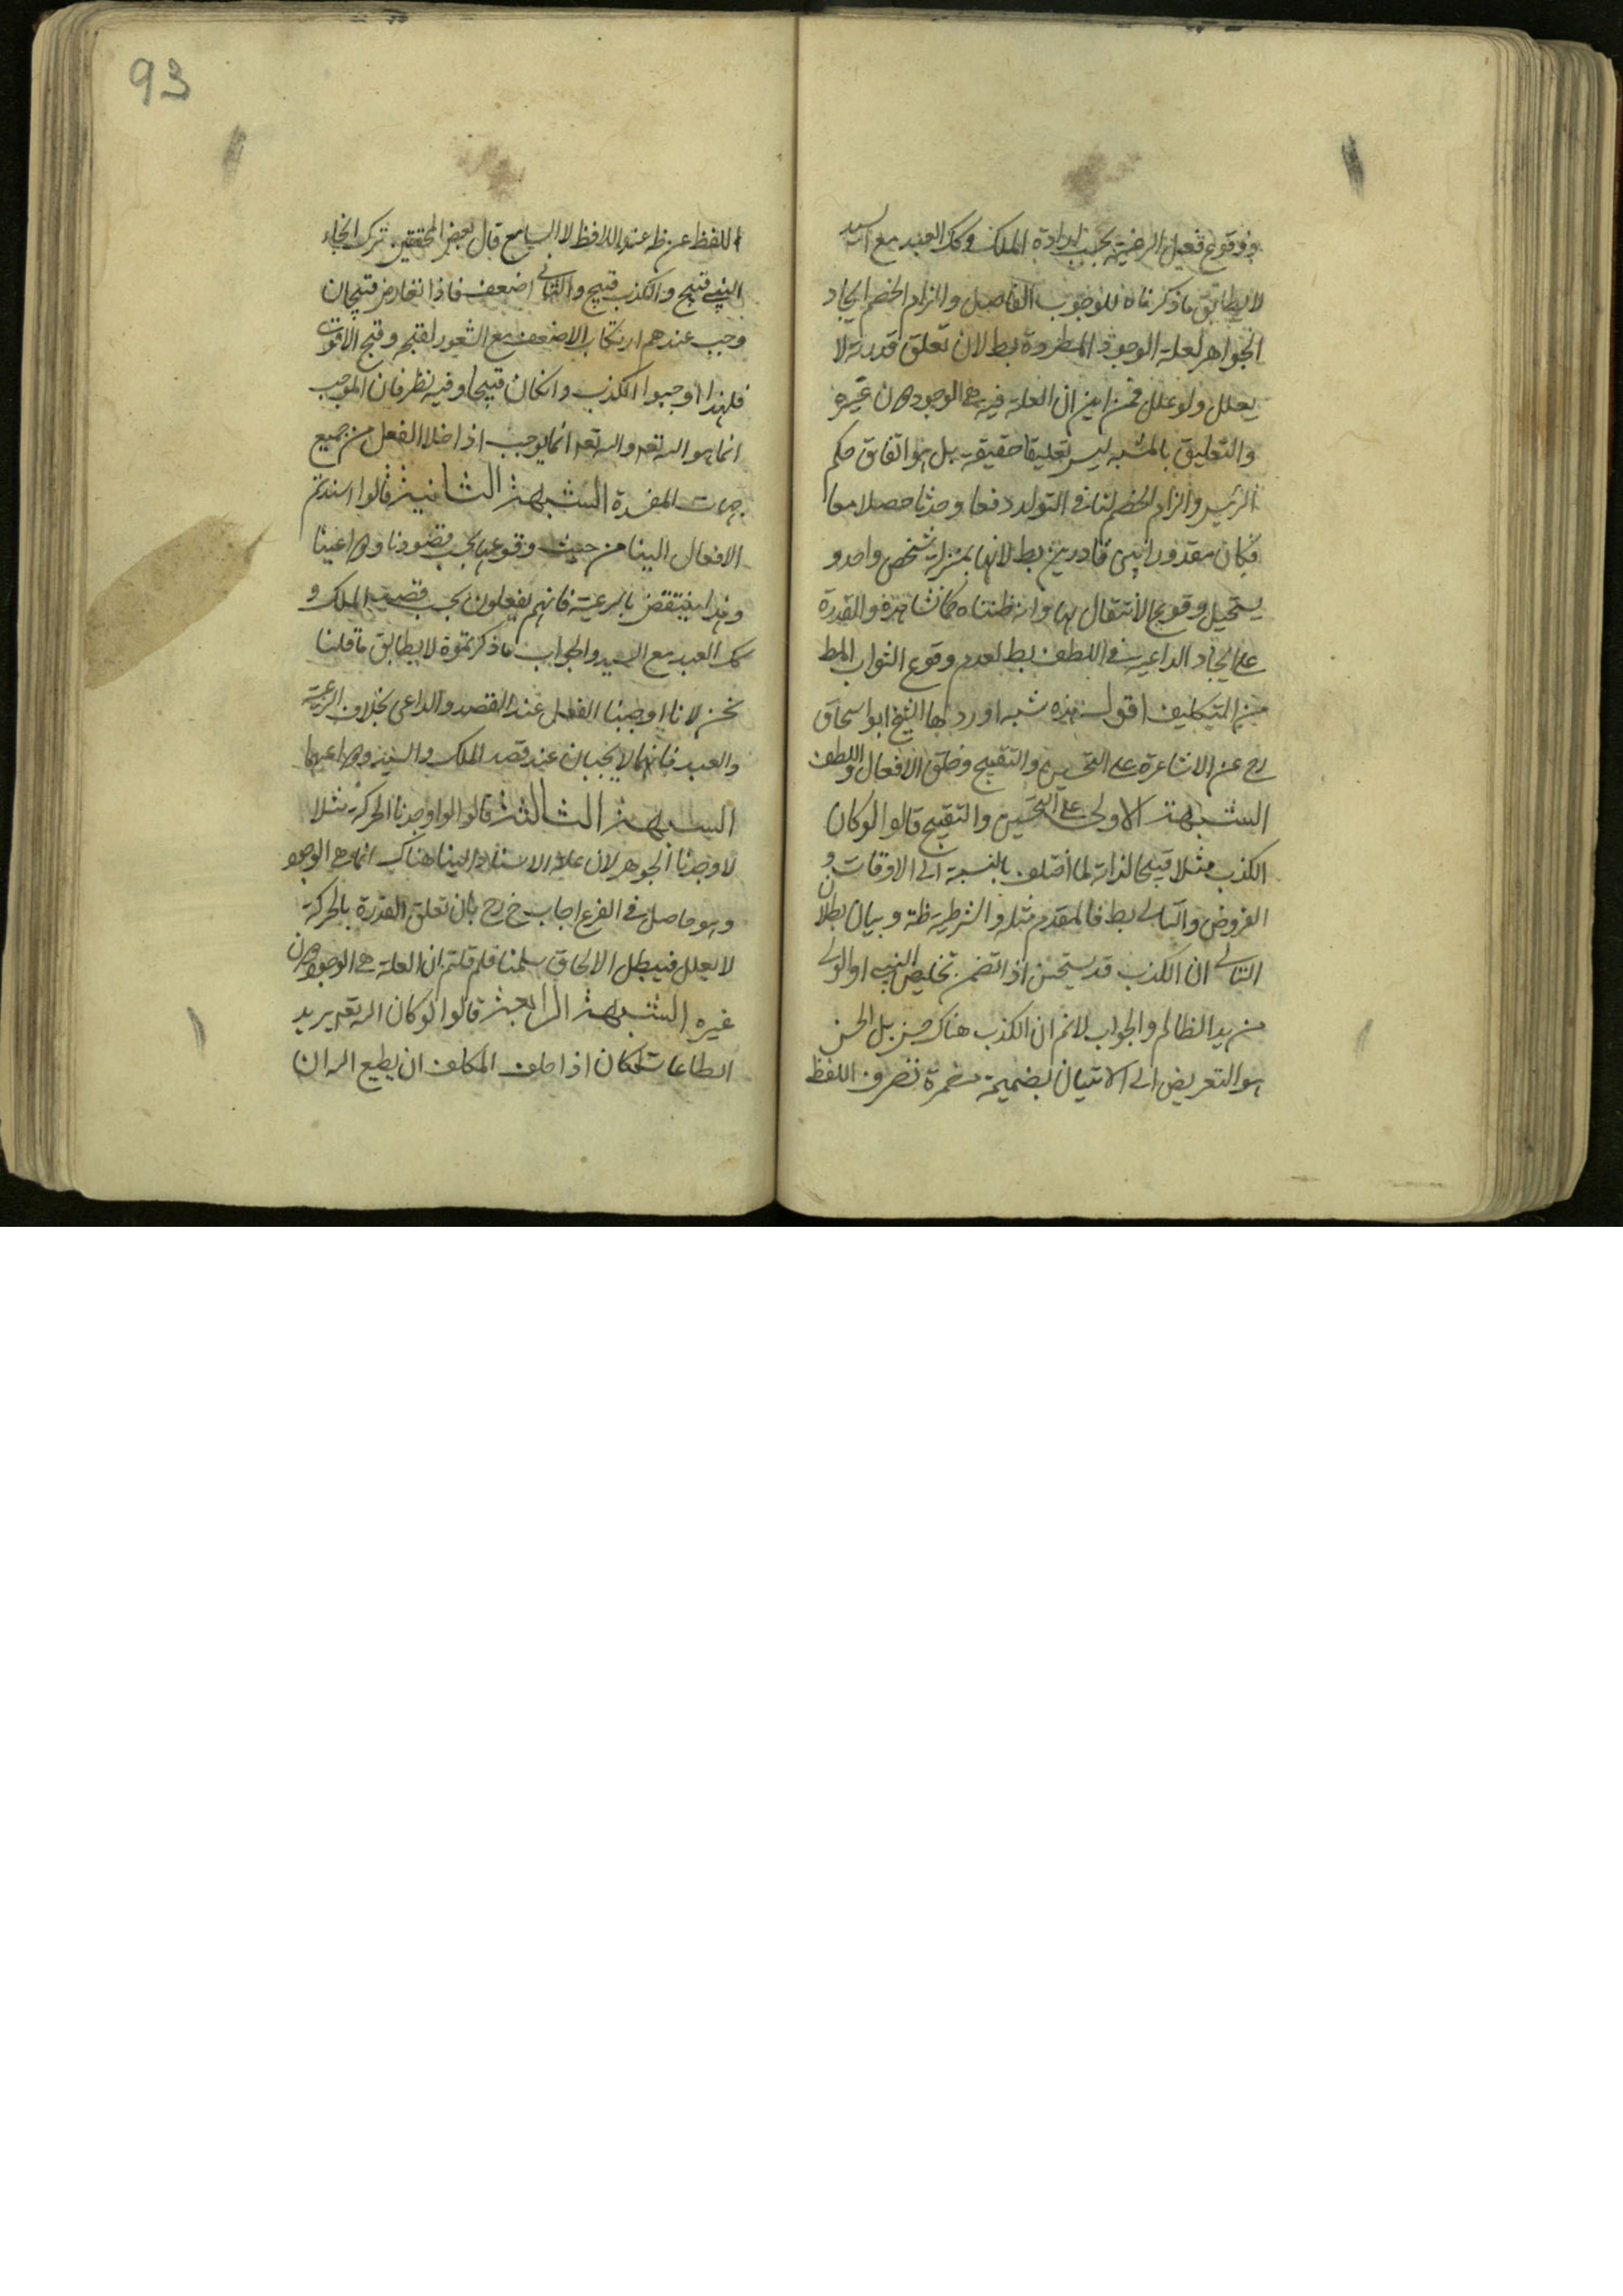 ووقوع فعيل الرعية بحسب ارادة الملك وكك العبد مع السيد
لا يطابق ما ذكرناه للوجوب الفاصل والزام الخصم ايجاد
الجواهر لعلة الوجود المطردة بط لان تعلق قدرته لا
يعلل ولو علل فمن اين ان العلة فيه هي الوجود دون غيره
والتعليق بالمشبه ليس تعليقا حقيقة بل هو اتفاق حكم
والزام الخصم لنا في التولد دفعا وحدثا حصلا معا
فكان مقدورا بين قادرين بط لانهما بمنزلة شخص واحد و
يستحيل وقوع الانتقال والقدرة
على ايجاد الداعية في اللطف بط لعدم وقوع الثواب المط
من التكليف اقول هذه شبه اوردها الشيخ ابو اسحاق
رح عن الاشاعرة على التحسين والتقبيح وخلق الافعال واللطف
الشبهة الاولى على التحسين والتقبيح قالوا لو كان
الكذب مثلا قبيحا لذاته لما اختلف بالنسبة الى الاوقات و
الفروض والتالي بط فالمقدم مثله والشرطية ظة وبيان بطلان
التالي ان الكذب قد يستحسن اذا تضمن تخليص النبي او الولي
من يد الظالم والجواب لانم ان الكذب هناك حسن بل الحسن
هو التعريض اي الاتيان بضميمة مضمرة تصرف اللفظ
93
اللفظ عن ظه عند اللافظ لا السامع قال بعض المحققين ترك انجاء
النبي قبيح والكذب قبيح والثاني اضعف فاذا تعارض قبيحان
وجب عندهم ارتكاب الاضعف مع الشعور لقبحه وقبح الاقوى
فلهذا اوجبوا الكذب وان كان قبيحا وفيه نظر فان الموجب
انما هو الله تعه والله تعه انما يوجب اذا خلا الفعل من جميع
جهات المفسدة الشبهة الثانية قالوا اسندتم
الافعال الينا من حيث وقوعها بحسب قصودنا ودواعينا
وهذا ينتقض بالرعية فانهم يفعلون بحسب قصد الملك و
كك العبد مع السيد والجواب ما ذكرتموه لا يطابق ما قلنا
نحن لانا اوجبنا الفعل عند القصد والداعي بخلاف الرعية
والعبد فانهما لا يجبان عند قصد الملك والسيد ودواعيهما
الشبهة الثالثة قالوا لو اوجدنا الحركة مثلا
لاوجدنا الجوهر لان علة الاسناد الينا هناك انما هي الوجود
وهو حاصل في الفرع اجاب رح بان تعلق القدرة بالحركة
لا يعلل فيبطل الالحاق سلمنا فلم قلتم ان العلة هي الوجود دون
غيره الشبهة الرابعة قالوا لو كان الله تعه يريد
الطاعات لكان اذا حلف المكلف ان يطيع الله ان